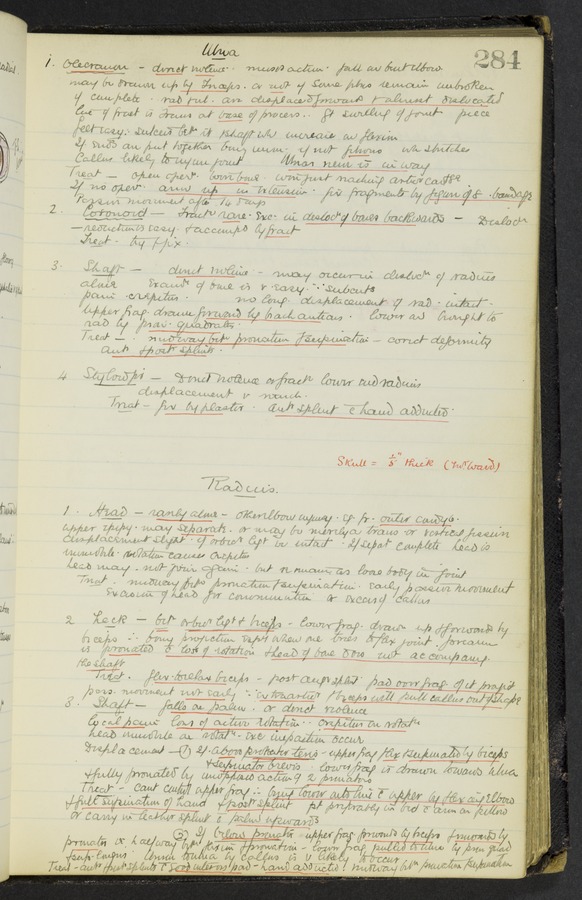 284
Ulna
1. Olecranon - direct violence. muscr action. fall on bent elbow
may be drawn up by Triceps. or not if some fibres remain unbroken
if complete. rad & ul. are displaced forward & almost dislocated
line of fract is across at base of process. gt swelling of joint piece
felt easy. sulcus bet it & shaft wh increase on flexion
If ends are put together bony union. if not fibrous wh stretches
Callus likely to injure joint Ulnar nerve is in way
Treat - open operⁿ.
If no operⁿ. arm up in extension. fix fragments by figure of 8. bandage
Passive movement after 14 days
2. Coronoid - Fractʳ rare. exc. in dislocⁿ of bones backwards - Dislocⁿ
- reduction is easy. & accompd by fract
Treat. by Flex.
3. Shaft - direct violence - may occur in dislocⁿ of radius
alone Examⁿ of bone is v easy ∵ subcuts
pain crepitus. no long. displacement if rad. intact.
Upper frag. drawn forward by brach anticus. lower are brought to
rad by pron. quadratus.
Treat -. midway betⁿ pronation & supination - correct deformity
ant & post splints.
4 Styloid pr - Direct violence or fractʳ lower end radius
displacement v much.
Treat - fix by plaster. antʳ splint c̄ hand adducted.
Skull = 1/5" thick (Inʳ Ward)
Radius.
1. Head - rarely alone - other elbow injury. eg fr. outer condyle.
upper epiphy. may separate. or may be merely a trans or vertical fissure
displacement slight. if orbicʳ ligt be intact. If separⁿ complete head is
immobile. rotation causes crepitus
head may. not join again. but remain as loose body in joint
Treat. midway betⁿ pronation & supination. early passive movement
Excision of head for comminution or excess of callus
2 Neck - betⁿ orbicʳ ligt & biceps - lower frag. drawn up & forwards by
biceps ∴ bony projection when one tries to flex joint. forearm
is pronated & loss of rotation & head of bone does not accompany
the shaft
Treat. flex - relax biceps - post angʳ splint pad over frag. if it projects
pass. movement not early ∵ biceps will pull callus out of shape
3. Shaft - falls on palm. or direct violence
local pain loss of active rotation. crepitus on rotatⁿ
head immobile on rotatⁿ. exc impaction occur
Displacement - ① If above pronator teres - upper frag flex & supinated by biceps
& supinator brevis. lower frag is drawn towards ulna
& fully pronated by unopposed action of 2 pronators
Treat - cant control upper frag ∴ bring lower into line c̄ upper by flexing elbow
& full supination of hand & post splint pt preferably in bed c̄ arm on pillow
or carry in leather splint c̄ palm upwards
② If below pronatʳ - upper frag. forwards by biceps & inwards by
pronator is halfway betⁿ flexion & pronation - lower frag. pulled to ulna by pron quad
supr longus. Union to ulna by callus is v likely to occur
Treat - ant & post splints c̄ interos pad - hand adducted. midway betⁿ pronation & supination